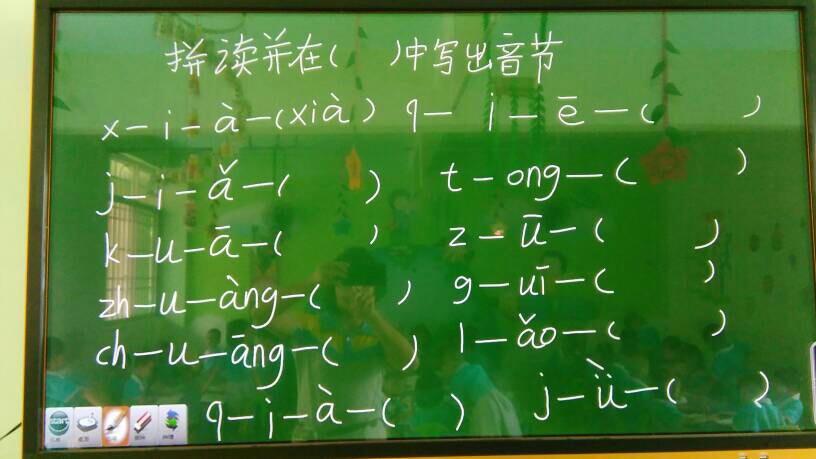 拼读并在( )中写出音节
x-i-à-(xià) q-i-ē-( )
j-i-ǎ-( ) t-ong-( )
k-u-ā-( ) z-ū-( )
zh-u-àng-( ) g-uī-( )
ch-u-āng-( ) l-ǎo-( )
q-i-à-( ) j-ǜ-( )
start